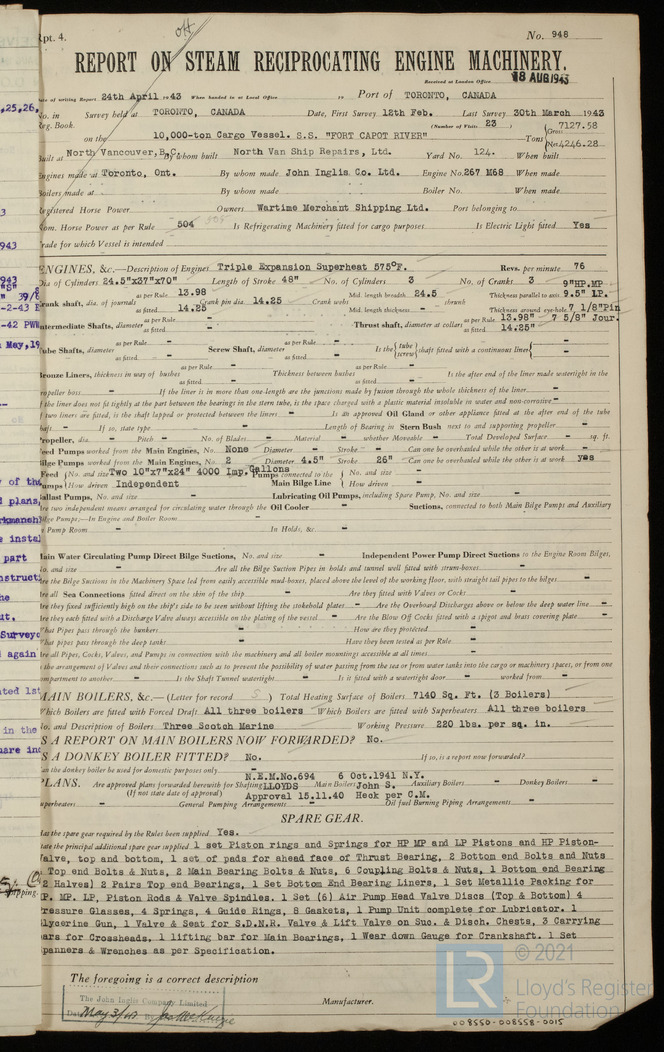 Rpt. 4.
No. 948
REPORT ON STEAM RECIPROCATING ENGINE MACHINERY.
Received at London Office 18 AUG 1943
Date of writing Report 24th April 1943 When handed in at Local Office 19 Port of TORONTO, CANADA
No. in Survey held at TORONTO, CANADA Date, First Survey 12th Feb. Last Survey 30th March 1943
Reg. Book. (Number of Visits 23)
on the 10,000-ton Cargo Vessel. S.S. "FORT CAPOT RIVER" Tons Gross 7127.58 Net 4246.28
Built at North Vancouver, B.C. By whom built North Van Ship Repairs, Ltd. Yard No. 124. When built
Engines made at Toronto, Ont. By whom made John Inglis Co. Ltd. Engine No. 267 M68 When made
Boilers made at By whom made Boiler No. When made
Registered Horse Power Owners Wartime Merchant Shipping Ltd. Port belonging to
Nom. Horse Power as per Rule 504 Is Refrigerating Machinery fitted for cargo purposes Is Electric Light fitted Yes
Trade for which Vessel is intended
ENGINES, &c.—Description of Engines Triple Expansion Superheat 575°F. Revs. per minute 76
Dia of Cylinders 24.5"x37"x70" Length of Stroke 48" No. of Cylinders 3 No. of Cranks 3 9"HP.MP
Crank shaft, dia. of journals as per Rule 13.98 as fitted 14.25 Crank pin dia. 14.25 Crank webs Mid. length breadth 24.5 Mid. length thickness - shrunk Thickness parallel to axis 9.5" LP. Thickness around eye-hole 7 1/8"Pin 7 5/8" Jour.
Intermediate Shafts, diameter as per Rule - as fitted - Thrust shaft, diameter at collars as per Rule 13.98" as fitted 14.25"
Tube Shafts, diameter as per Rule - as fitted Screw Shaft, diameter as per Rule - as fitted - Is the tube screw shaft fitted with a continuous liner -
Bronze Liners, thickness in way of bushes as per Rule - as fitted - Thickness between bushes as per Rule - as fitted - Is the after end of the liner made watertight in the
propeller boss - If the liner is in more than one length are the junctions made by fusion through the whole thickness of the liner -
If the liner does not fit tightly at the part between the bearings in the stern tube, is the space charged with a plastic material insoluble in water and non-corrosive -
If two liners are fitted, is the shaft lapped or protected between the liners - Is an approved Oil Gland or other appliance fitted at the after end of the tube
shaft - If so, state type - Length of Bearing in Stern Bush next to and supporting propeller -
Propeller, dia. - Pitch - No. of Blades - Material - whether Moveable - Total Developed Surface - sq. ft.
Feed Pumps worked from the Main Engines, No. None Diameter - Stroke - Can one be overhauled while the other is at work -
Bilge Pumps worked from the Main Engines, No. 2 Diameter 4.5" Stroke 26" Can one be overhauled while the other is at work yes
Feed Pumps No. and size Two 10"x7"x24" 4000 Imp. Gallons Pumps connected to the Main Bilge Line No. and size -
How driven Independent How driven -
Ballast Pumps, No. and size - Lubricating Oil Pumps, including Spare Pump, No. and size -
Are two independent means arranged for circulating water through the Oil Cooler - Suctions, connected to both Main Bilge Pumps and Auxiliary
Bilge Pumps;—In Engine and Boiler Room -
In Pump Room - In Holds, &c. -
Main Water Circulating Pump Direct Bilge Suctions, No. and size - Independent Power Pump Direct Suctions to the Engine Room Bilges,
No. and size - Are all the Bilge Suction Pipes in holds and tunnel well fitted with strum-boxes -
Are the Bilge Suctions in the Machinery Space led from easily accessible mud-boxes, placed above the level of the working floor, with straight tail pipes to the bilges -
Are all Sea Connections fitted direct on the skin of the ship - Are they fitted with Valves or Cocks -
Are they fixed sufficiently high on the ship's side to be seen without lifting the stokehold plates - Are the Overboard Discharges above or below the deep water line -
Are they each fitted with a Discharge Valve always accessible on the plating of the vessel - Are the Blow Off Cocks fitted with a spigot and brass covering plate -
What Pipes pass through the bunkers - How are they protected -
What pipes pass through the deep tanks - Have they been tested as per Rule -
Are all Pipes, Cocks, Valves, and Pumps in connection with the machinery and all boiler mountings accessible at all times -
Is the arrangement of Valves and their connections such as to prevent the possibility of water passing from the sea or from water tanks into the cargo or machinery spaces, or from one
compartment to another - Is the Shaft Tunnel watertight - Is it fitted with a watertight door - worked from -
MAIN BOILERS, &c.— (Letter for record S) Total Heating Surface of Boilers 7140 Sq. Ft. (3 Boilers)
Which Boilers are fitted with Forced Draft All three boilers Which Boilers are fitted with Superheaters All three boilers
No. and Description of Boilers Three Scotch Marine Working Pressure 220 lbs. per sq. in.
IS A REPORT ON MAIN BOILERS NOW FORWARDED? No.
IS A DONKEY BOILER FITTED? No. If so, is a report now forwarded?
Can the donkey boiler be used for domestic purposes only -
PLANS. Are approved plans forwarded herewith for Shafting N.E.M.No.694 LLOYDS Main Boilers 6 Oct.1941 N.Y. John S. Auxiliary Boilers - Donkey Boilers -
(If not state date of approval) Approval 15.11.40 Heck per C.M.
Superheaters - General Pumping Arrangements - Oil fuel Burning Piping Arrangements -
SPARE GEAR.
Has the spare gear required by the Rules been supplied Yes.
State the principal additional spare gear supplied 1 set Piston rings and Springs for HP MP and LP Pistons and HP Piston-
Valve, top and bottom, 1 set of pads for ahead face of Thrust Bearing, 2 Bottom end Bolts and Nuts
Top End bolts & Nuts, 2 Main Bearing Bolts & Nuts, 6 Coupling Bolts & Nuts, 1 Bottom end Bearing
(2 Halves) 2 Pairs Top end Bearings, 1 Set Bottom End Bearing Liners, 1 Set Metallic Packing for
HP. MP. LP, Piston Rods & Valve Spindles. 1 Set (6) Air Pump Head Valve Discs (Top & Bottom) 4
Pressure Glasses, 4 Springs, 4 Guide Rings, 8 Gaskets, 1 Pump Unit complete for Lubricator. 1
Glycerine Gun, 1 Valve & Seat for S.D.N.R. Valve & Lift Valve on Suc. & Disch. Chests, 3 Carrying
Bars for Crossheads, 1 lifting bar for Main Bearings, 1 Wear down Gauge for Crankshaft. 1 Set
Spanners & Wrenches as per Specification.
The foregoing is a correct description
The John Inglis Company Limited
Date May 3/43 By
Manufacturer.
© 2021
Lloyd's Register
Foundation
008550-008558-0015